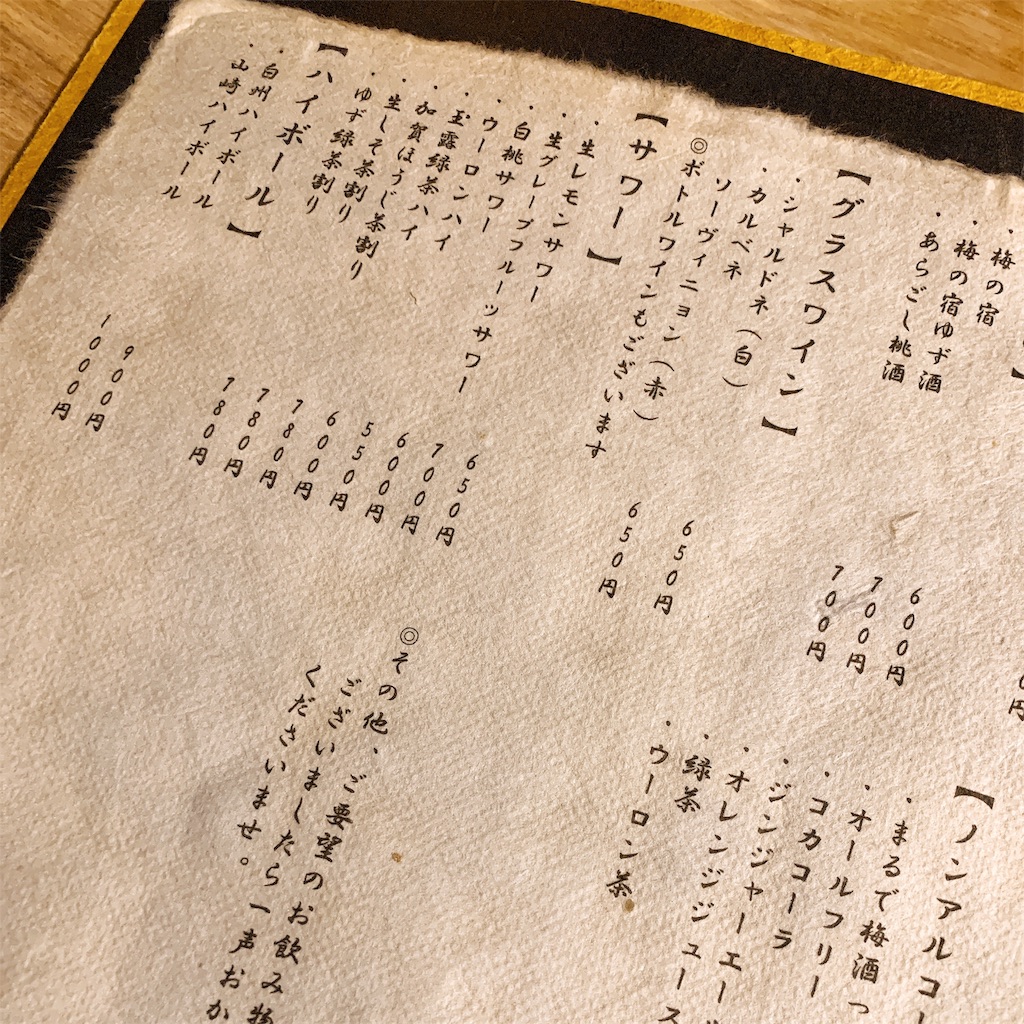 ・梅の宿 600円
・梅の宿ゆず酒 700円
・あらごし桃酒 700円
【グラスワイン】
・シャルドネ（白） 650円
・カルベネ
ソーヴィニョン（赤） 650円
◎ボトルワインもございます
【サワー】
・生レモンサワー 650円
・生グレープフルーツサワー 700円
・白桃サワー 600円
・ウーロンハイ 550円
・玉露緑茶ハイ 600円
・加賀ほうじ茶割り 780円
・生しそ茶割り 780円
・ゆず緑茶割り 780円
【ハイボール】
・白州ハイボール 900円
・山崎ハイボール 1000円
【ノンアルコー
・まるで梅酒
・オールフリー
・コカコーラ
・ジンジャーエー
・オレンジジュース
・緑茶
・ウーロン茶
◎その他、ご要望のお飲み物
ございましたら一声おか
くださいませ。